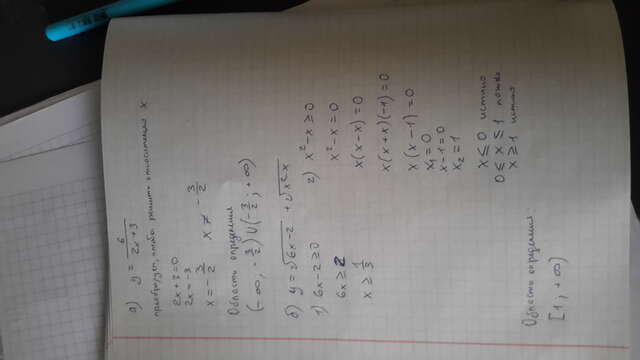 а) y = 6/(2x+3)
преобразует, чтобы решить относительно x
2x+3=0
2x=-3
x=-3/2 x≠-3/2
Область определения
(-∞, -3/2)∪(-3/2; +∞)
б) y=√(6x-2) + √(x²x)
1) 6x-2≥0
6x≥2
x≥1/3
2) x²-x≥0
x²-x=0
x(x-x)=0
x(x+x)(-1)=0
x(x-1)=0
x₁=0
x-1=0
x₂=1
x≤0 истино
0≤x≤1 ложно
x≥1 истино
Область определения
[1; +∞)